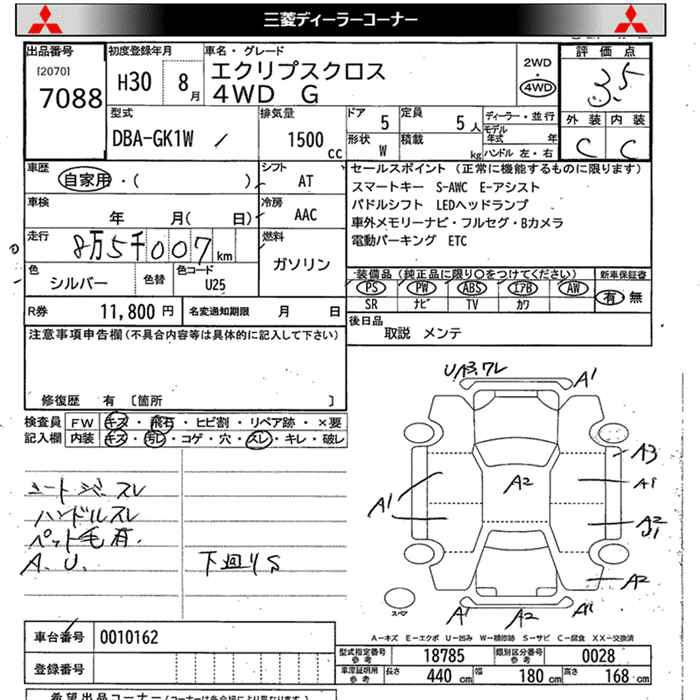 三菱ディーラーコーナー
出品番号 初度登録年月 車名・グレード 評価点
[2070]
7088 H30 8月 エクリプスクロス 2WD・4WD 3.5
4WD G
外装 内装
C C
型式 排気量 ドア 5 定員 5人 ディーラー・並行
DBA-GK1W 1500cc 形状 W 積載 kg モデル年式 年
ハンドル 左・右
車歴 シフト セールスポイント (正常に機能するものに限ります)
自家用・( ) AT スマートキー S-AWC E-アシスト
車検 冷房 パドルシフト LEDヘッドランプ
年 月( 日) AAC 車外メモリーナビ・フルセグ・Bカメラ
走行 燃料 電動パーキング ETC
8万5千007km ガソリン
色 色替 色コード 装備品 (純正品に限り○をつけてください) 新車保証書
シルバー U25 PS PW ABS エアB AW 有 無
SR ナビ TV カワ
R券 11,800円 名変通知期限 月 日 後日品
取説 メンテ
注意事項申告欄(不具合内容等は具体的に記入して下さい)
修復歴 有 [箇所 ]
検査員 FW キズ・飛石・ヒビ割・リペア跡・×要
記入欄 内装 キズ・汚レ・コゲ・穴・スレ・キレ・破レ
UA3.ワレ A1
A3
A1 A2 A1
A2
U1
A2
シートシミ、スレ
ハンドルスレ
ペット毛有.
A.U. 下廻りS
スペア A1 A2 A1
A-キズ E-エクボ U-凹み W-補修跡 S-サビ C-腐食 XX-交換済
車台番号 0010162 型式指定番号 参考 18785 類別区分番号 参考 0028
登録番号 車庫証明用 参考 長さ 440cm 幅 180cm 高さ 168cm
希望出品コーナー